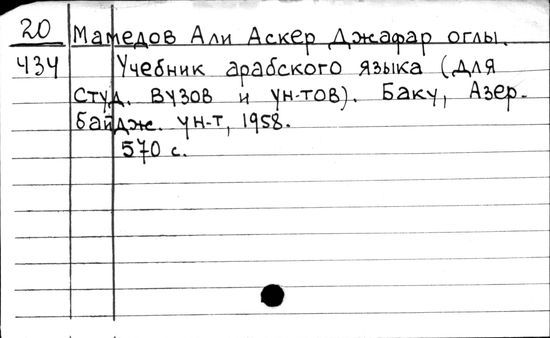 20 Мамедов Али Аскер Джафар оглы.
434 Учебник арабского языка (для
студ. вузов и ун-тов). Баку, Азер-
байдж. ун-т, 1958.
570 с.